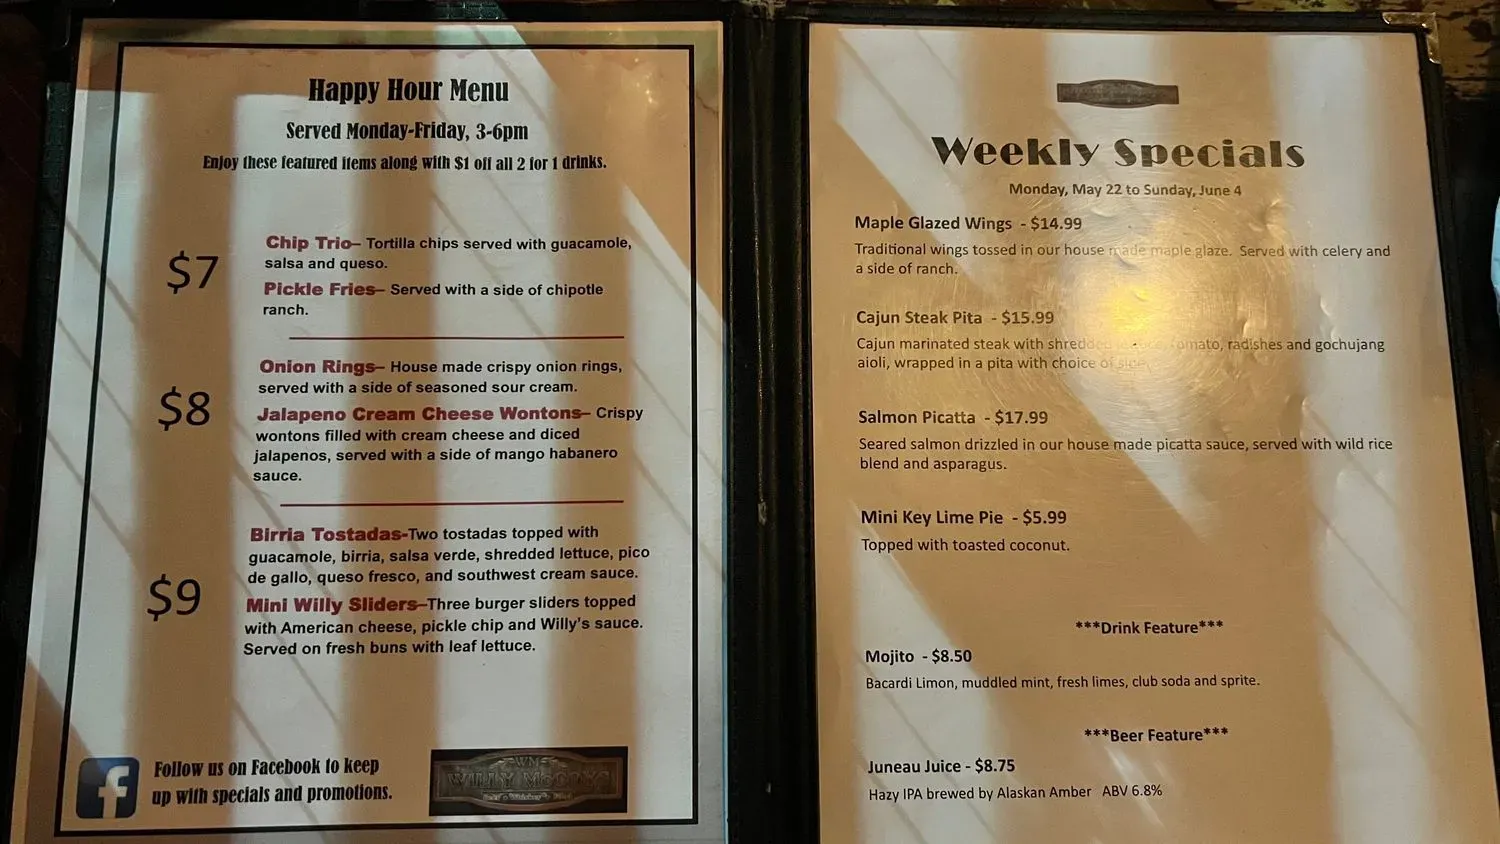 Happy Hour Menu
Served Monday-Friday, 3-6pm
Enjoy these featured items along with $1 off all 2 for 1 drinks.
$7
Chip Trio– Tortilla chips served with guacamole,
salsa and queso.
Pickle Fries– Served with a side of chipotle
ranch.
$8
Onion Rings– House made crispy onion rings,
served with a side of seasoned sour cream.
Jalapeno Cream Cheese Wontons– Crispy
wontons filled with cream cheese and diced
jalapenos, served with a side of mango habanero
sauce.
$9
Birria Tostadas-Two tostadas topped with
guacamole, birria, salsa verde, shredded lettuce, pico
de gallo, queso fresco, and southwest cream sauce.
Mini Willy Sliders–Three burger sliders topped
with American cheese, pickle chip and Willy's sauce.
Served on fresh buns with leaf lettuce.
f
Follow us on Facebook to keep
up with specials and promotions.
WM
WILLY McCOYS
Weekly Specials
Monday, May 22 to Sunday, June 4
Maple Glazed Wings - $14.99
Traditional wings tossed in our house made maple glaze. Served with celery and
a side of ranch.
Cajun Steak Pita - $15.99
Cajun marinated steak with shredded tomato, radishes and gochujang
aioli, wrapped in a pita with choice of side.
Salmon Picatta - $17.99
Seared salmon drizzled in our house made picatta sauce, served with wild rice
blend and asparagus.
Mini Key Lime Pie - $5.99
Topped with toasted coconut.
***Drink Feature***
Mojito - $8.50
Bacardi Limon, muddled mint, fresh limes, club soda and sprite.
***Beer Feature***
Juneau Juice - $8.75
Hazy IPA brewed by Alaskan Amber ABV 6.8%